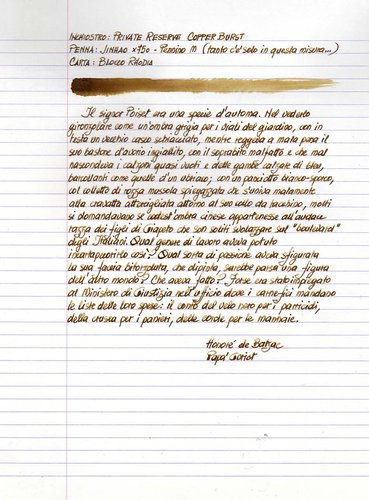 INCHIOSTRO: PRIVATE RESERVE COPPER BURST
PENNA: JINHAO X750 - Pennino M (tanto c'è solo in questa misura...)
CARTA: BLOCCO RHODIA
Il signor Poiret era una specie d'automa. Nel vederlo
gironzolare come un'ombra grigia per i viali del giardino, con in
testa un vecchio casco schiacciato, mentre reggeva a mala pena il
suo bastone d'avorio ingiallito, con il soprabito malfatto e che mal
nascondeva i calzoni quasi vuoti e delle gambe calzate di blu,
barcollanti come quelle d'un ubriaco; con un panciotto bianco-sporco,
col colletto di rozza mussola spiegazzata che s'univa malamente
alla cravatta attorcigliata attorno al suo collo da tacchino, molti
si domandavano se codest'ombra cinese appartenesse all'audace
razza dei figli di Giapeto che son soliti svolazzare sul "boulevard"
degli Italiani. Qual genere di lavoro aveva potuto
incartapecorirlo così? Qual sorta di passione aveva sfigurata
la sua faccia bitorzoluta, che dipinta, sarebbe parsa una figura
dell'altro mondo? Che aveva fatto? Forse era stato impiegato
al Ministero di Giustizia nell'ufficio dove i carnefici mandano
le liste delle loro spese: il conto del velo nero per i parricidi,
della crusca per i panieri, delle corde per le mannaie.
Honoré de Balzac
Papà Goriot